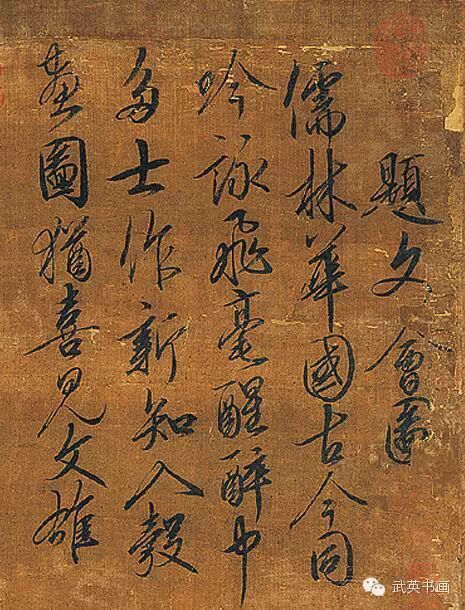 題文會圖
儒林華國古今同
吟詠飛毫醒醉中
多士作新知入彀
畫圖猶喜見文雄
武英书画